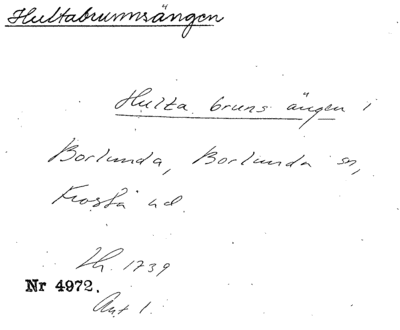 Hultabrunnsängen
Hulta bruns ängen i
Borlunda, Borlunda sn,
Frosta hd.
Lh. 1739
Nr 4972.
Akt 1.